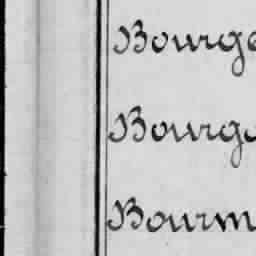 Bourge
Bourgo
Bourm